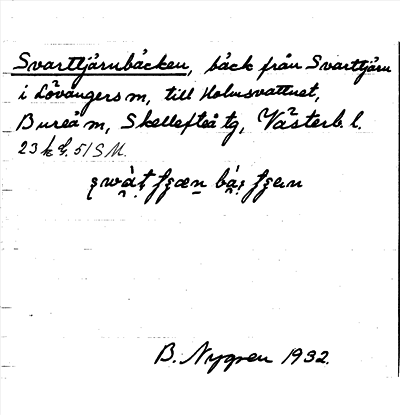 Svarttjärnbäcken, bäck från Svarttjärn
i Lövångers sn, till Holmsvattnet,
Bureå sn, Skellefteå tg, Västerb. l.
23 k 51 SM.
B. Nygren 1932.